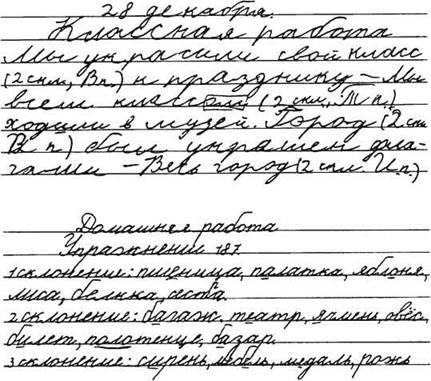 28 декабря.
Классная работа
Мы украсили свой класс
(2 скл., В п.) к празднику – Мы
всем классом (2 скл., Т п.)
ходили в музей. Город (2 скл
В п) был украшен фла-
гами – Весь город (2 скл. И. п.)
Домашняя работа
Упражнение 187
1 склонение: пшеница, палатка, яблоня,
лиса, белка, сеста
2 склонение: багаж, театр, ячмень, овёс,
билет, полотенце, базар.
3 склонение: сирень, мебель, медаль, рожь